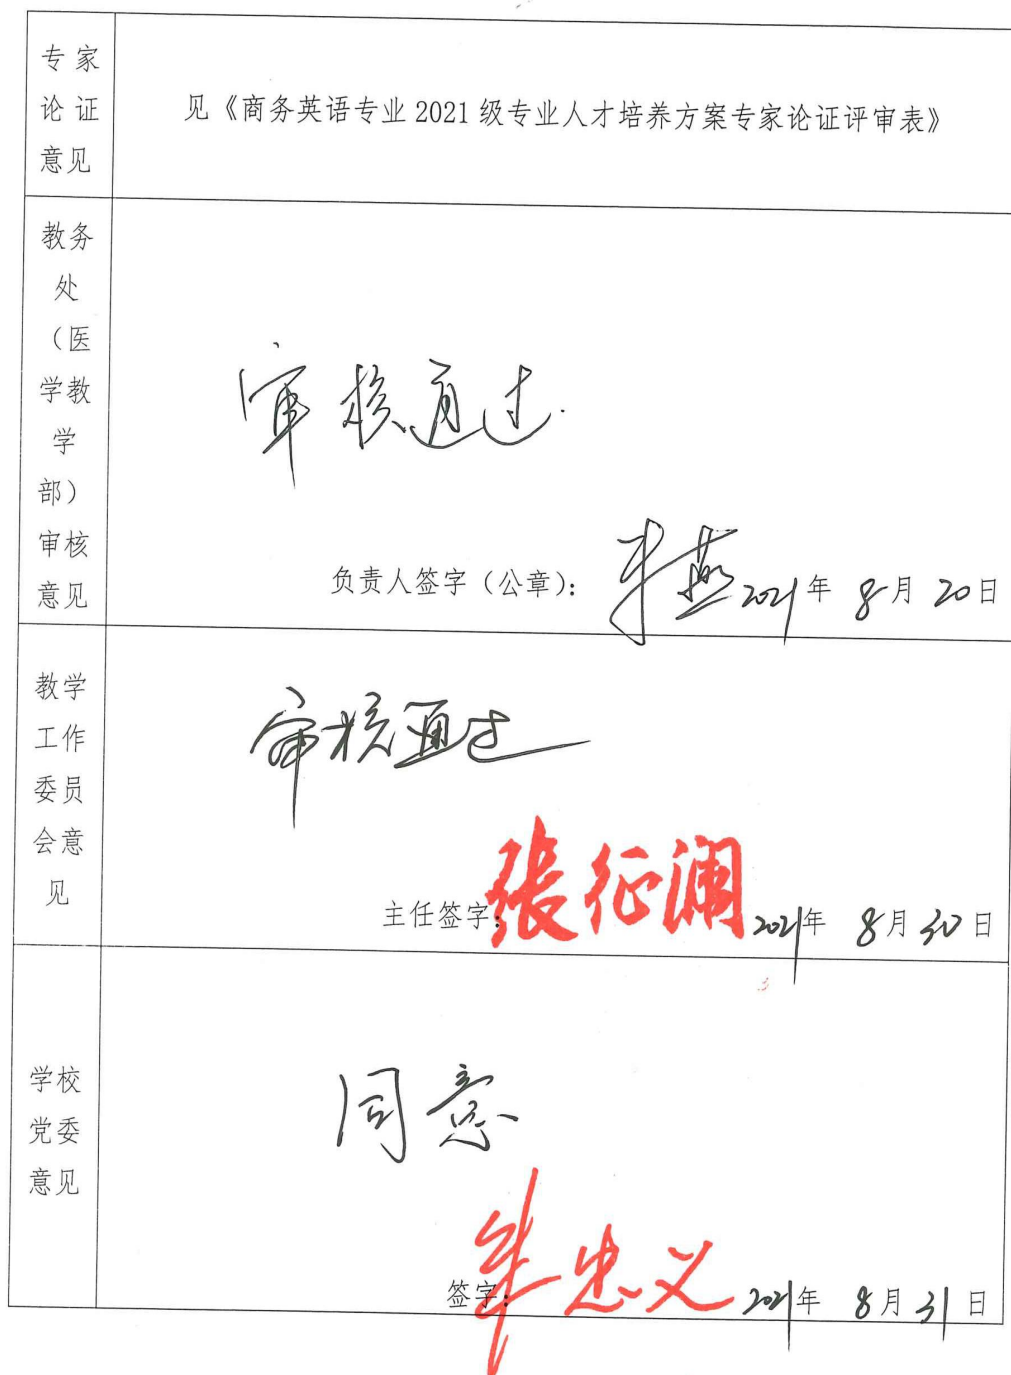 专家
论证
意见
见《商务英语专业 2021 级专业人才培养方案专家论证评审表》
教务
处
（医
学教
学
部）
审核
意见
审核通过.
负责人签字（公章）： 燕 2021年 8月 20日
教学
工作
委员
会意
见
审核通过
主任签字： 张征澜 2021年 8月 30日
学校
党委
意见
同意
签字： 牟忠义 2021年 8月 31日